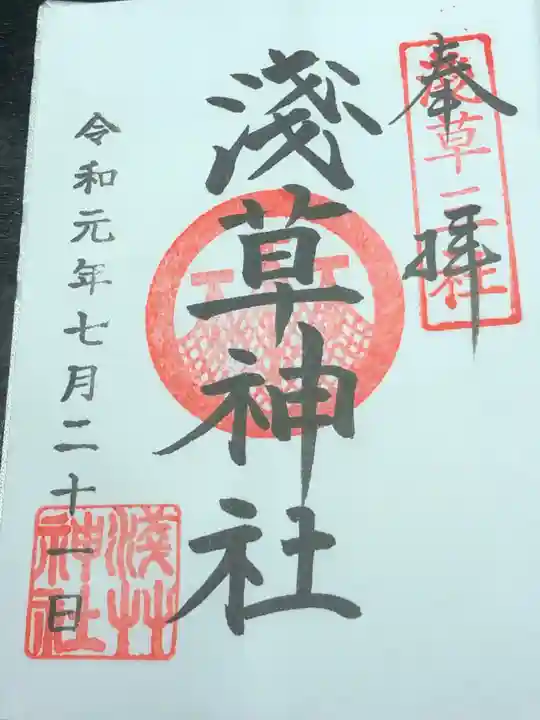 奉拝
淺草三社
淺草神社
令和元年七月二十一日
淺草神社